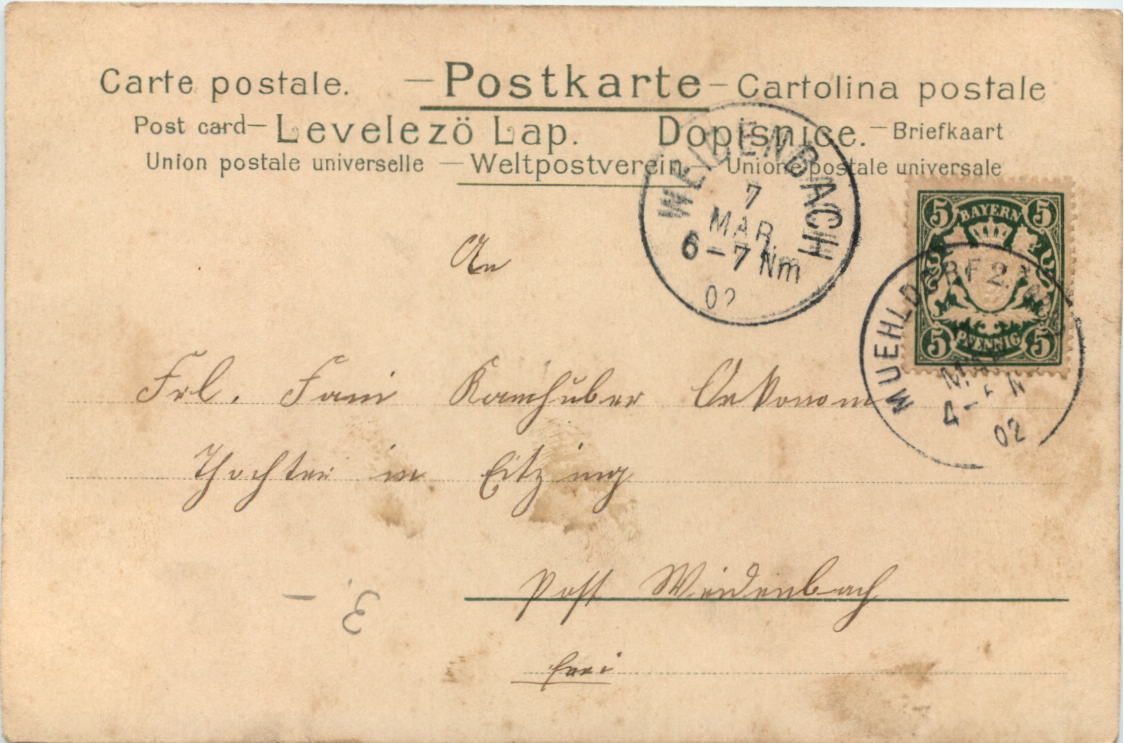 Carte postale. — Postkarte — Cartolina postale
Post card — Levelezö Lap. Dopisnice. — Briefkaart
Union postale universelle — Weltpostverein Unione postale universale
WEIDENBACH
7
MAR.
6-7 Nm
02
5 BAYERN 5
5 PFENNIG 5
MUEHLDORF 2.
4-5 N
02
An
Frl. Fani Kamhuber Oekonom
Thochter in Eitzing
Post Weidenbach
frei
3.-